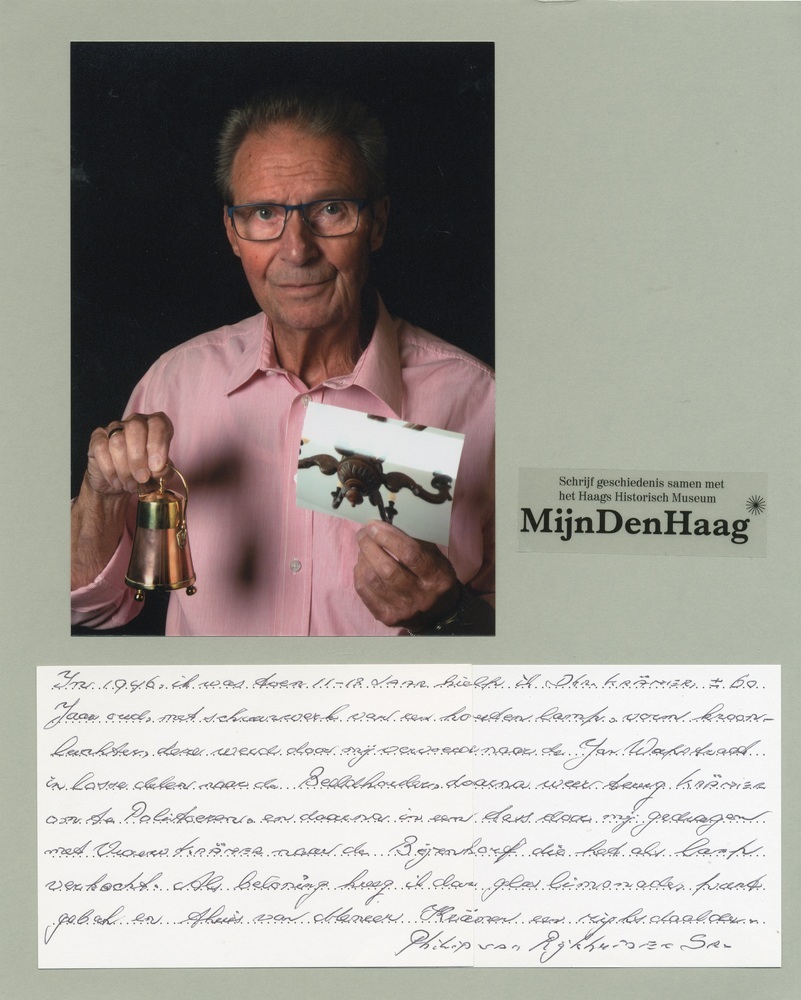 Schrijf geschiedenis samen met
het Haags Historisch Museum
MijnDenHaag
In 1946. ik was toen 11-12 Jaar hielp ik Dhr. KRÄMER ± 60.
Jaar oud. met schuurwerk van een houten lamp. vorm kroon-
luchter, deze werd door mij vervoerd naar de Jan Wapstraat
in losse delen naar de Beeldhouder, daarna weer terug KRÄMER
om te Politoeren. en daarna in een doos door mij gedragen
met Vrouw KRÄMER naar de Bijenkorf die het als lamp
verkocht. Als beloning kreeg ik daar glas limonade, punt
gebak en thuis van Meneer Krämer een rijksdaalder.
Philip van Rijkhuizen Sr.